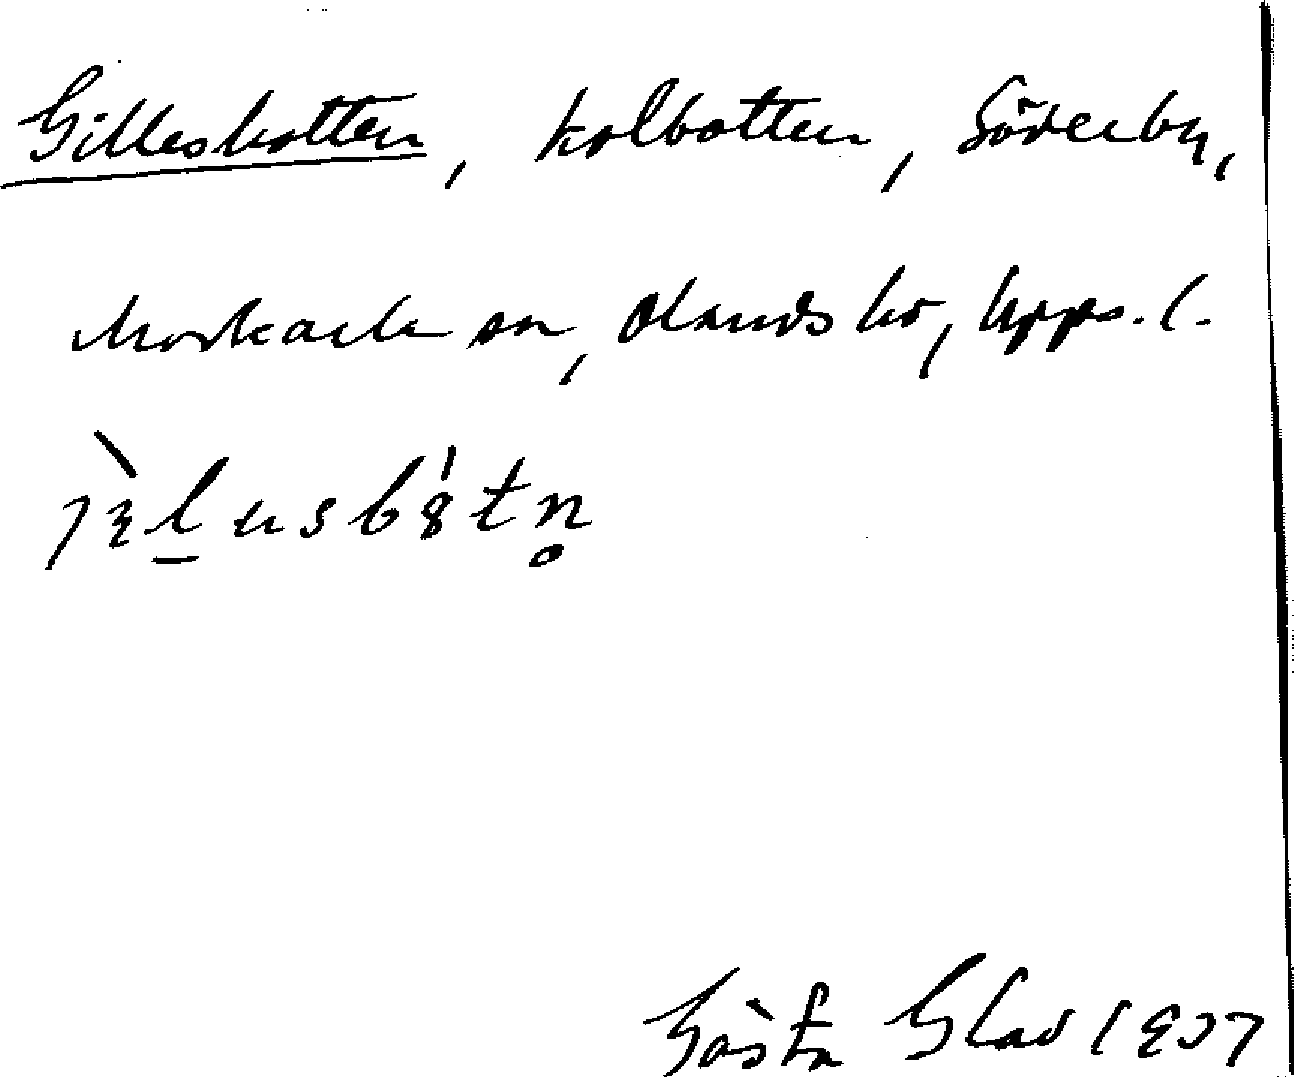 Gillesbotten, kolbotten, Söderby,
Morkarla sn, Olands hd, Upps. l.
Gösta Glad 1937